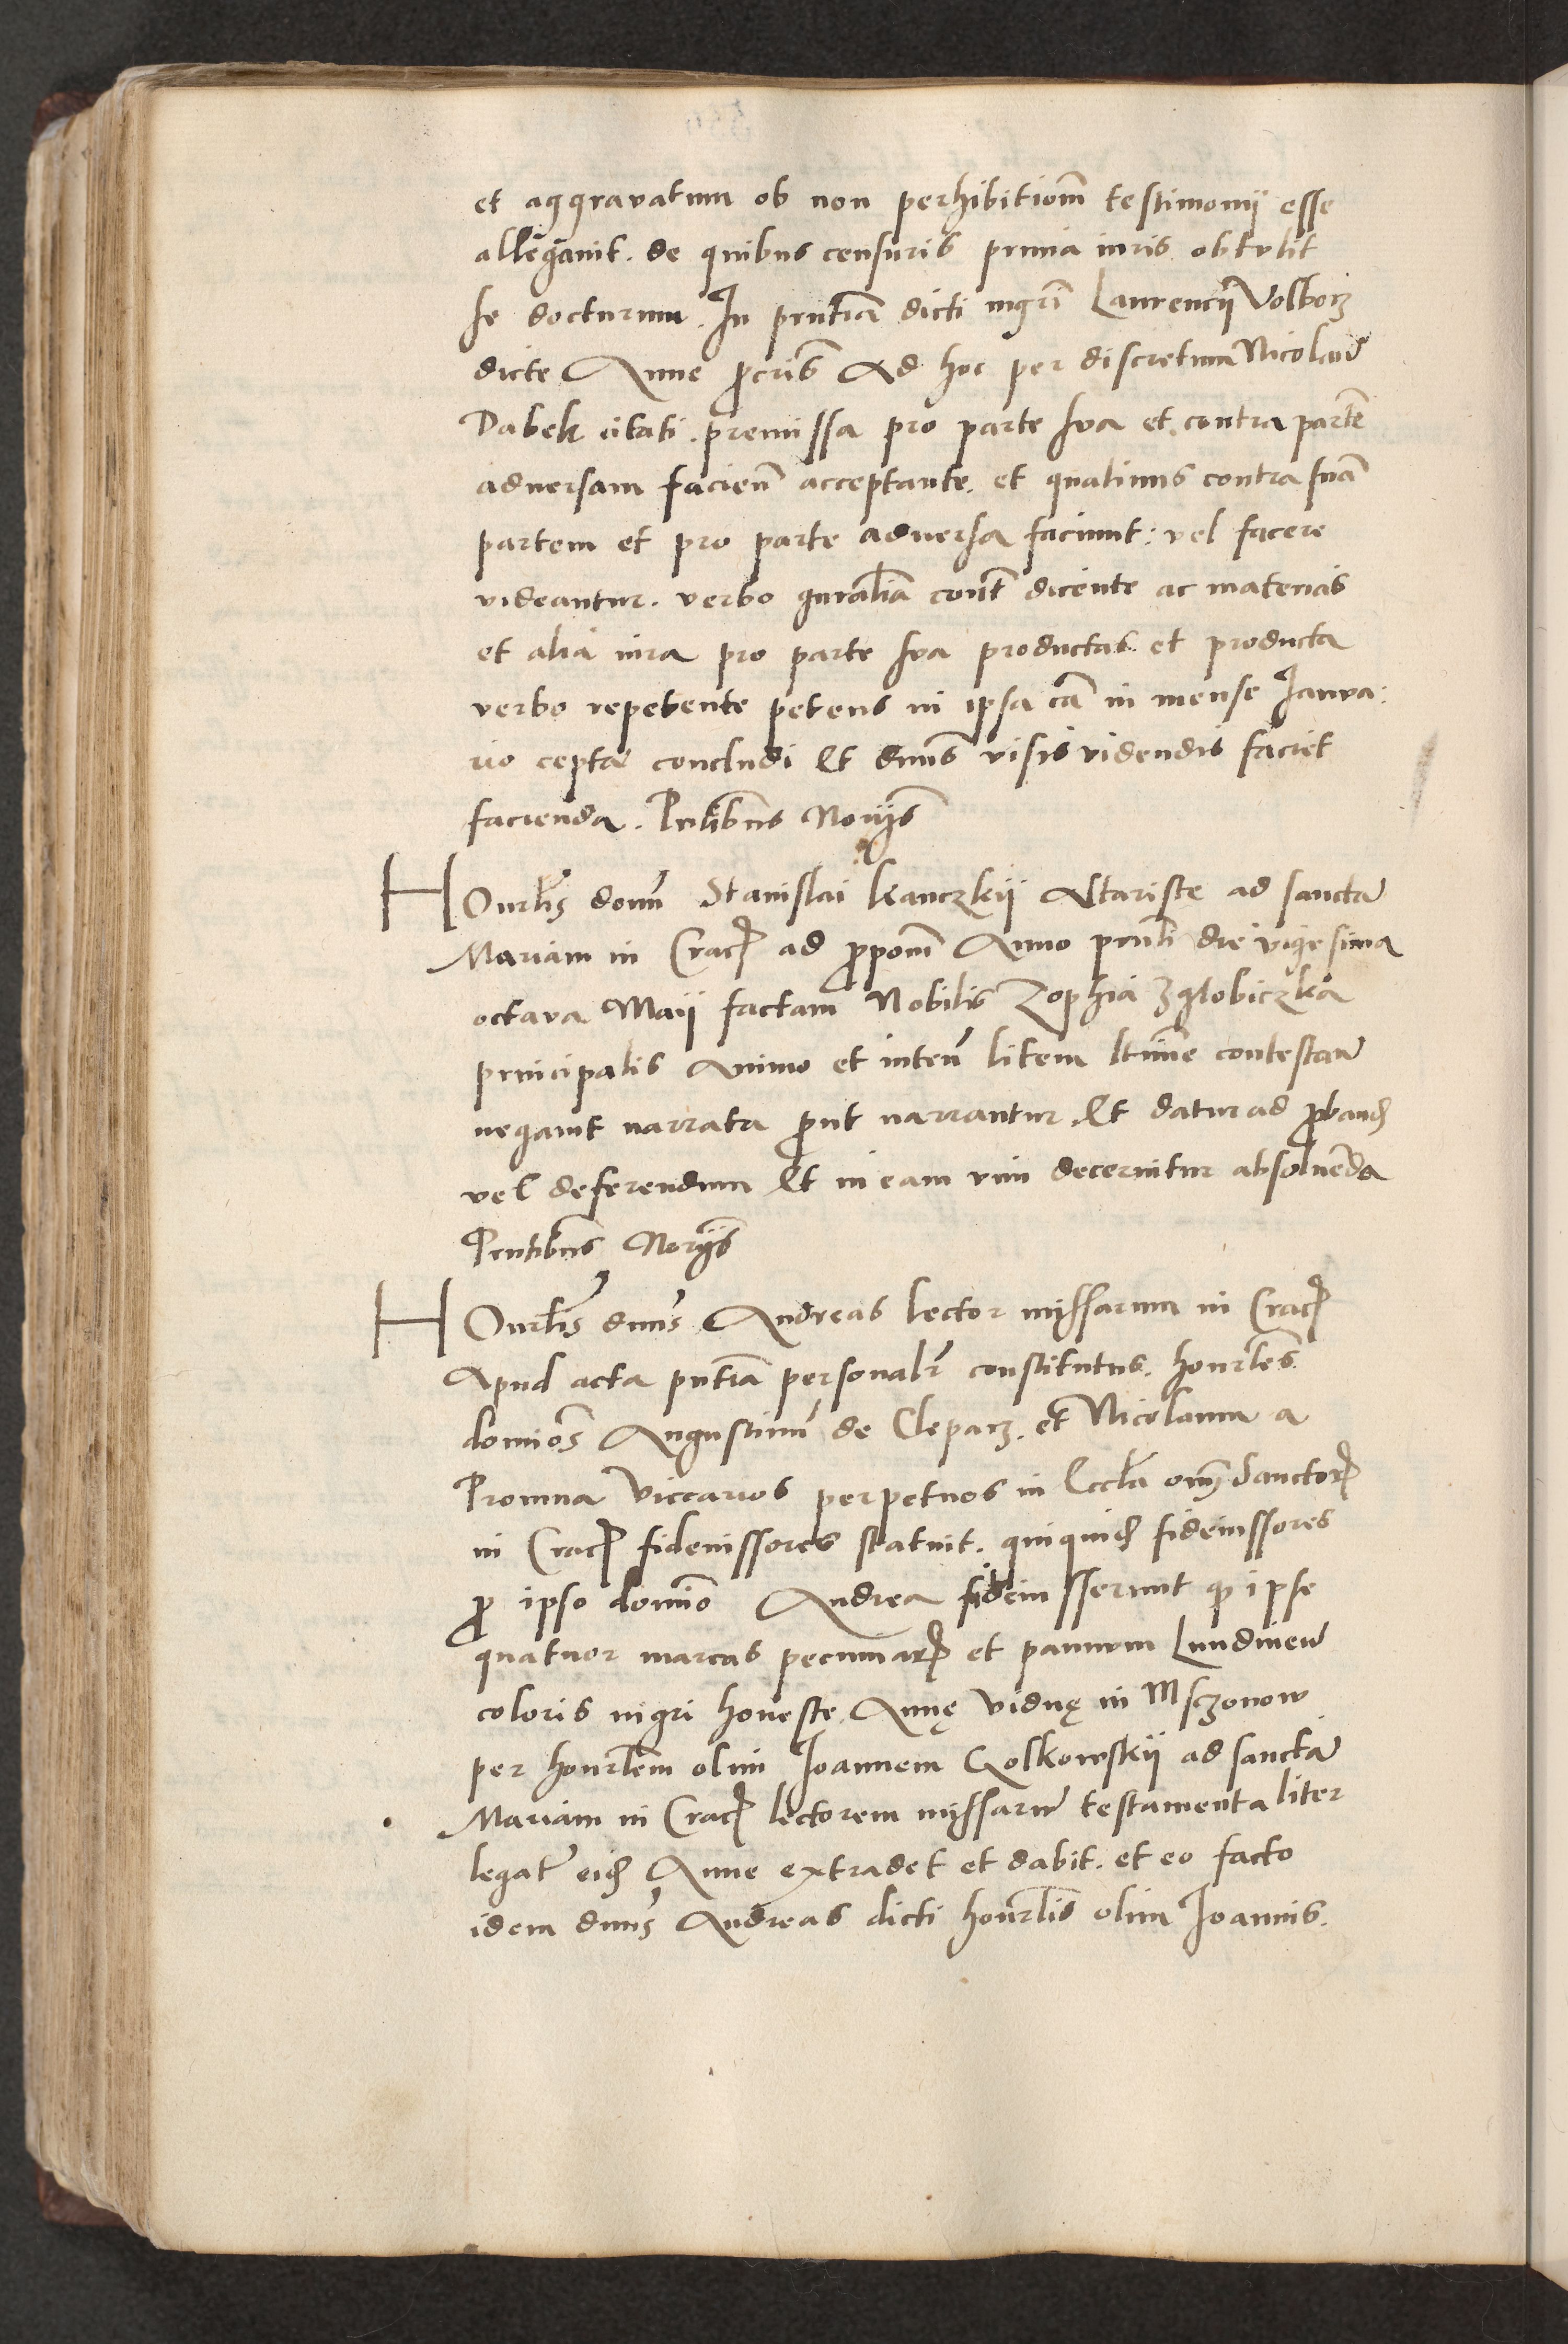 et aggravatum ob non perhibitiom̄ testimonij esse
allegauit. de quibus censuris primā iuris obtulit
se docturum. In pn̄tiā dicti mgrī Laurencij Volborz
dicte Anne ꝓcrīs Ad hoc per discretum Nicolaū
Dabek citati. premissa pro parte sua et contra partē
aduersam facien̄ acceptante. et qualimus contra suā
partem et pro parte aduersa faciunt: vel facere
videantur. verbo gn̄raliā con̄t dicente ac materias
et alia iura pro parte sua productas et producta
verbo repetente petens in ipsa cā in mense Ianua:
rio cepta concludi Et dn̄us visis videndis faciet
facienda. Pn̄tibus Norijs
Honrlis domī Stanislai Kanczkij Altariste ad sanctā
Mariam in Crac̄ ad ꝓpōm̄ Anno pn̄ti die vigesima
octaua Maij factam Nobilis Zophia Zglobiczka
principalis Animo et inten̄ litem ltīme contestan̄
negauit narrata ꝓut narrantur. Et datur ad ꝓband̄
vel deferendum Et in eam vim decernitur absoluēda
Pn̄tibus Norijs
Honrlis dn̄us Andreas lector missarum in Crac̄
Apud acta pn̄tiā personalr̄ constitutus. honrles
dominos Augustinū de Cleparz. et Nicolaum a
Promna Viccarios perpetuos in Eccl̄a om̄ Sanctor̄
in Crac̄ fideiussores statuit. quiquid̄ fideiussores
ꝓ ipso domino Andrea fideiusserunt ꝙ ipse
quatuor marcas pecuniar̄ et pannum Lundinen̄
coloris nigri honeste Annę viduę in Msczonow
per honrlem olim Ioannem Golkowskij ad sanctā
Mariam in Crac̄ lectorem missarū testamentaliter
legat̄ eid̄ Anne extradet et dabit. et eo facto
idem dn̄us Andreas dicti honrlis olim Ioannis.